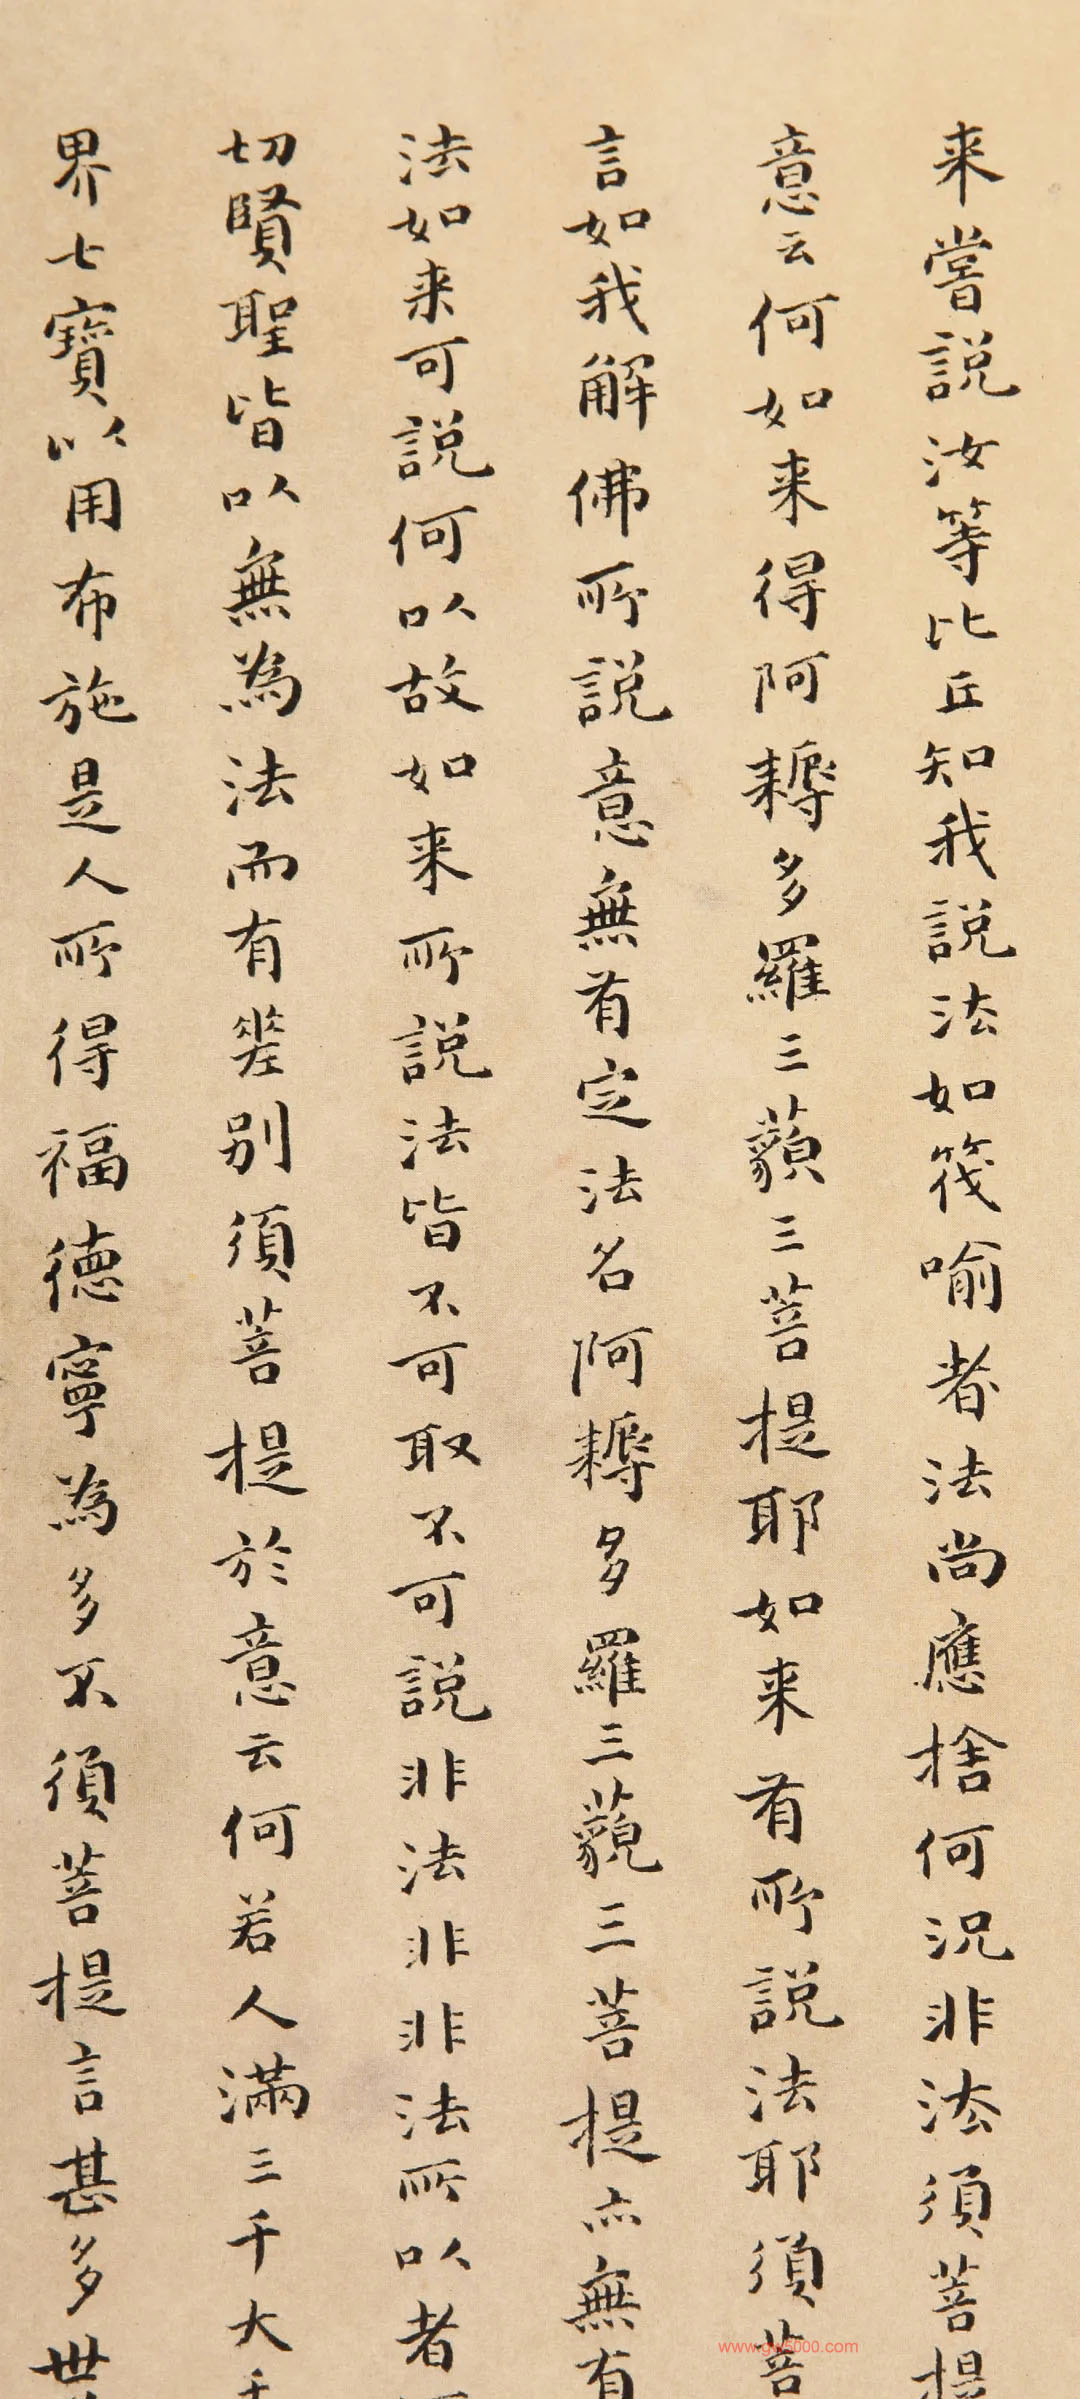 来嘗説汝等比丘知我説法如筏喻者法尚應捨何況非法須菩提
意云何如来得阿耨多羅三藐三菩提耶如来有所説法耶須菩
言如我解佛所説意無有定法名阿耨多羅三藐三菩提亦無有
法如来可説何以故如来所説法皆不可取不可説非法非非法所以者
切賢聖皆以無為法而有差别須菩提於意云何若人滿三千大千
界七寶以用布施是人所得福德寧為多不須菩提言甚多世
www.gw5000.com